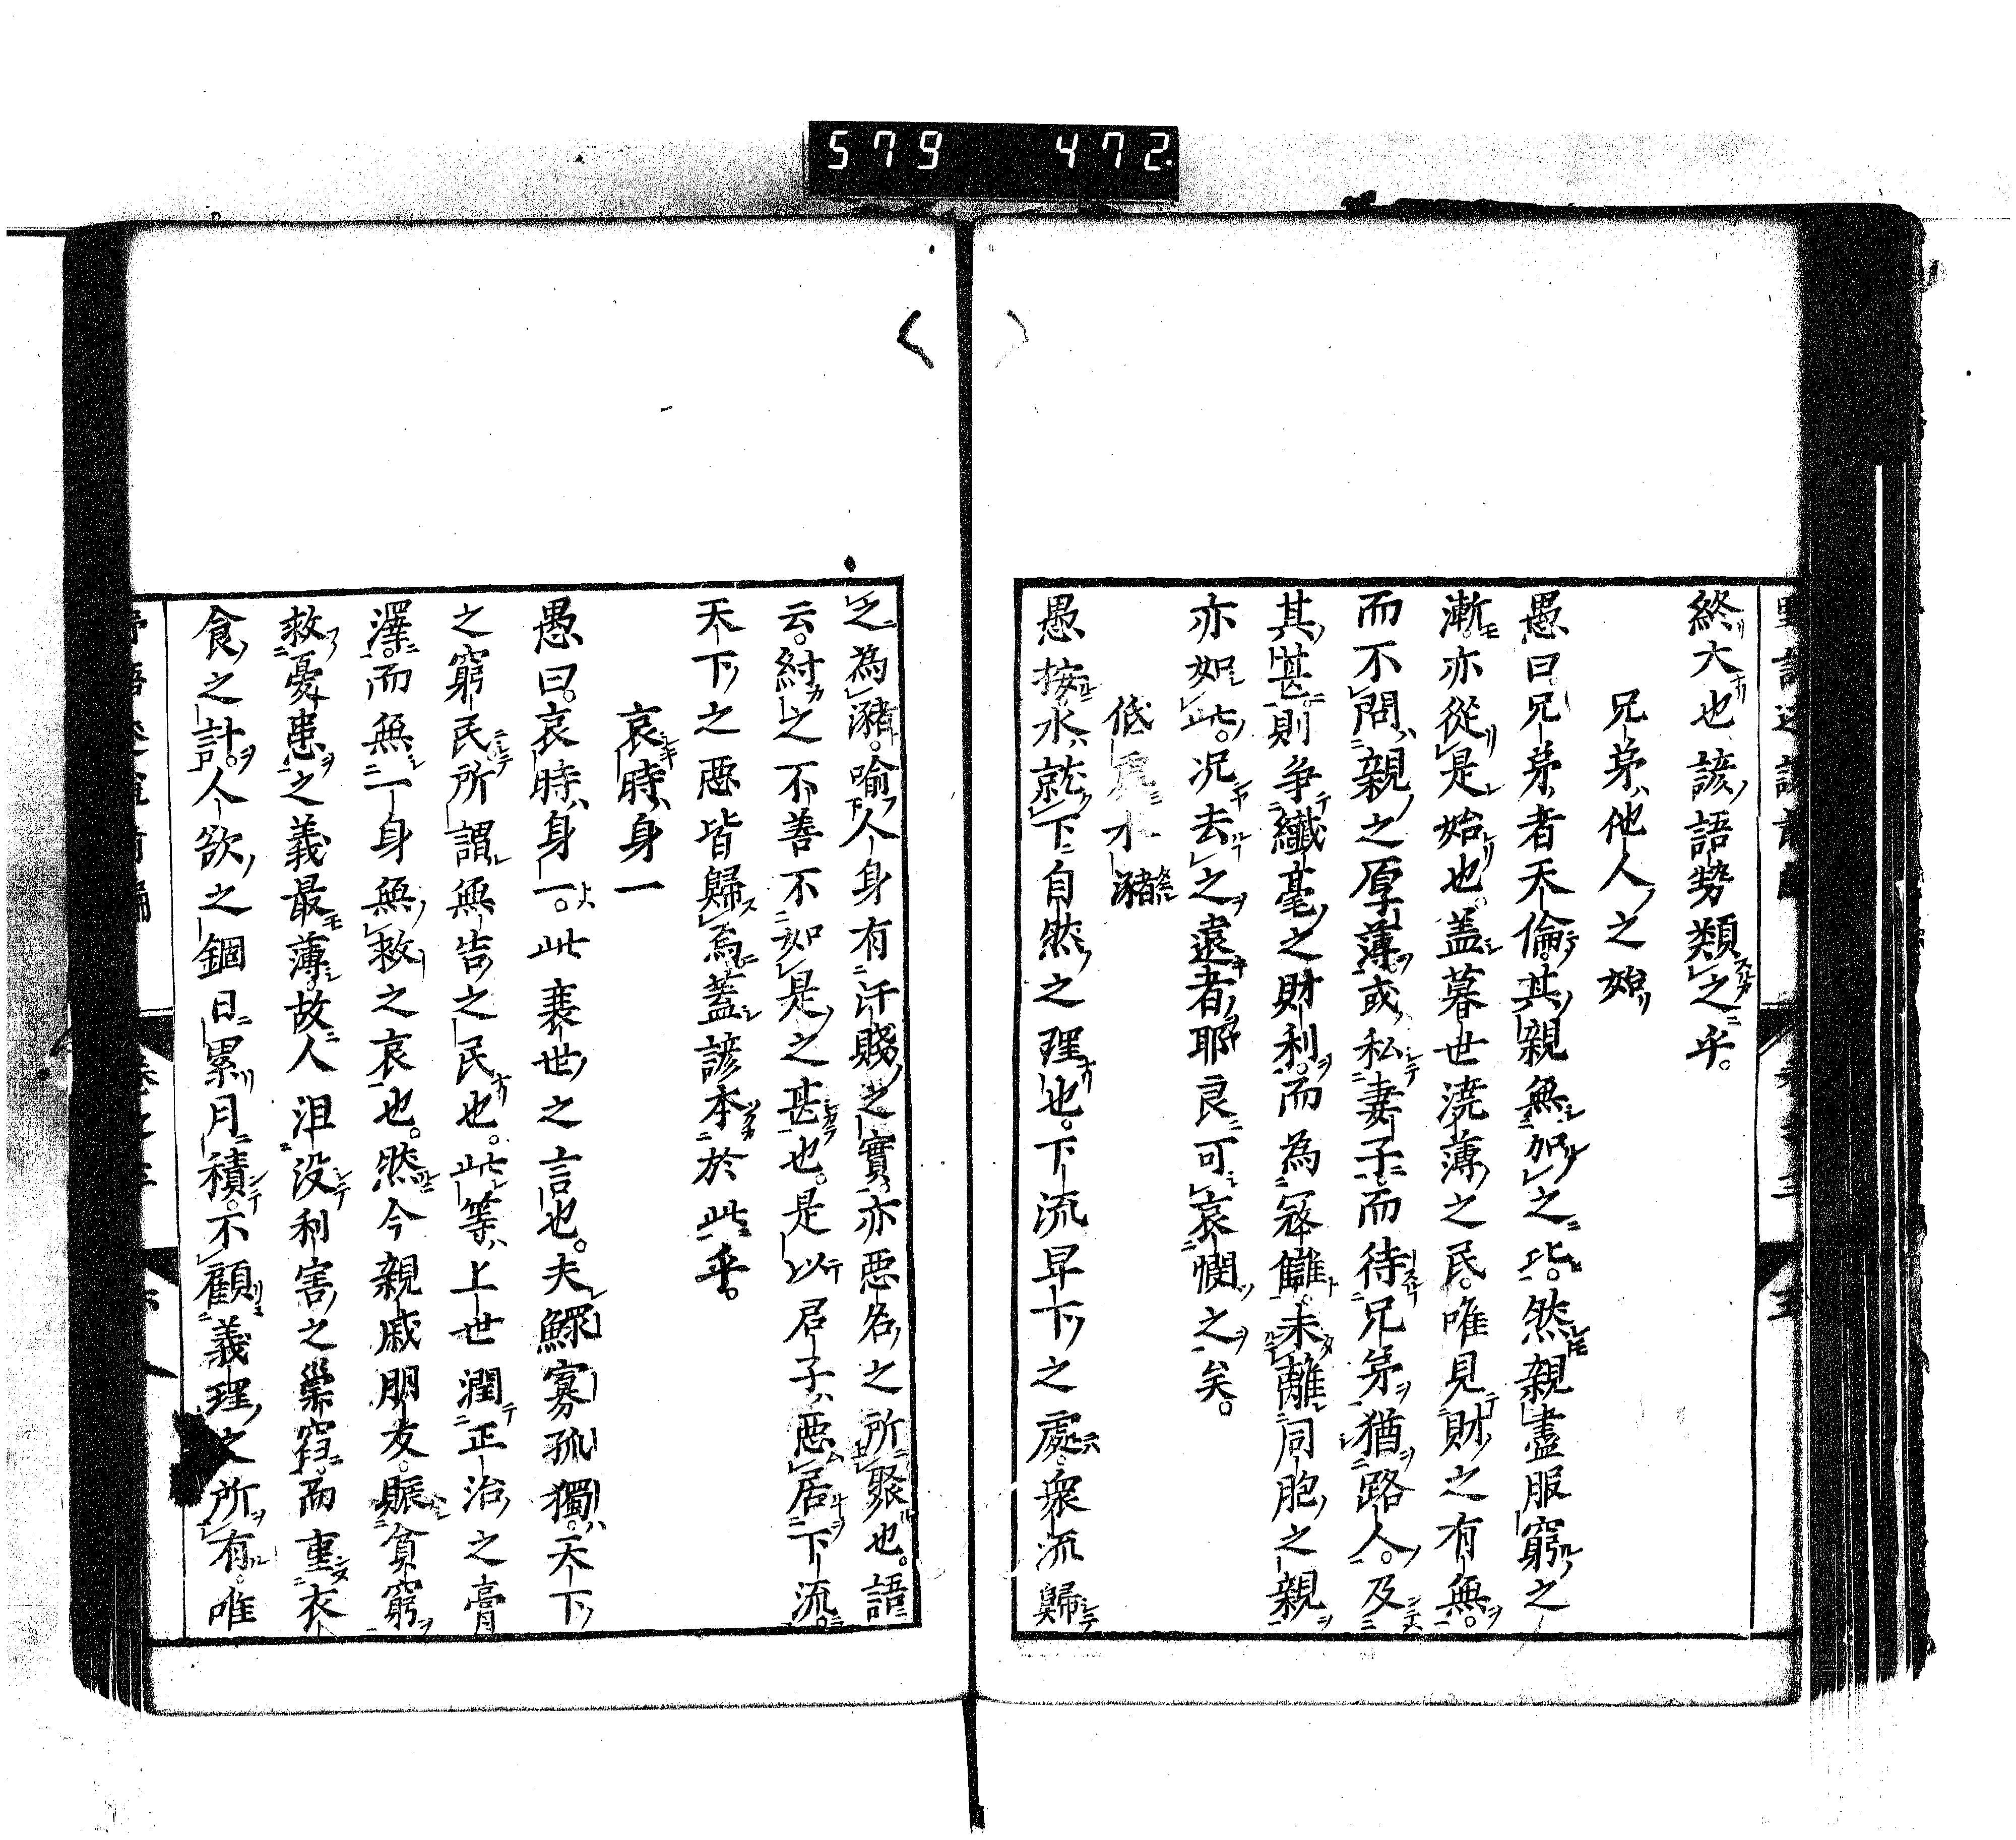 579 472
終大也諺語勢類之乎。
兄弟他人之始
愚曰兄弟者天倫其親無加之此。然親盡服窮之
漸亦從是始也。蓋暮世澆薄之民。唯見財之有無。
而不問親之厚薄或私妻子而待兄弟猶路人。及
其甚則争纖毫之財利。而為寇讎。未離同胞之親
亦如此。况去之遠者耶良可哀憫之矣。
低處水瀦
愚按水就下自然之理也。下流卑下之處。衆流歸
之為瀦。喻人身有汗賤之實亦惡名之所聚也。語
云。紂之不善不如是之甚也。是以君子惡居下流。
天下之惡皆歸焉蓋諺本於此乎。
哀時身一
愚曰。哀時身一。此衰世之言也。夫鰥寡孤獨。天下
之窮民所謂無告之民也。此等上世潤正治之膏
澤。而無一身無救之哀也。然今親戚朋友。賑貧窮
救憂患之義最薄。故人沮没利害之巢窟。而重衣
食之計。人欲之錮日累月積。不顧義理之所有。唯